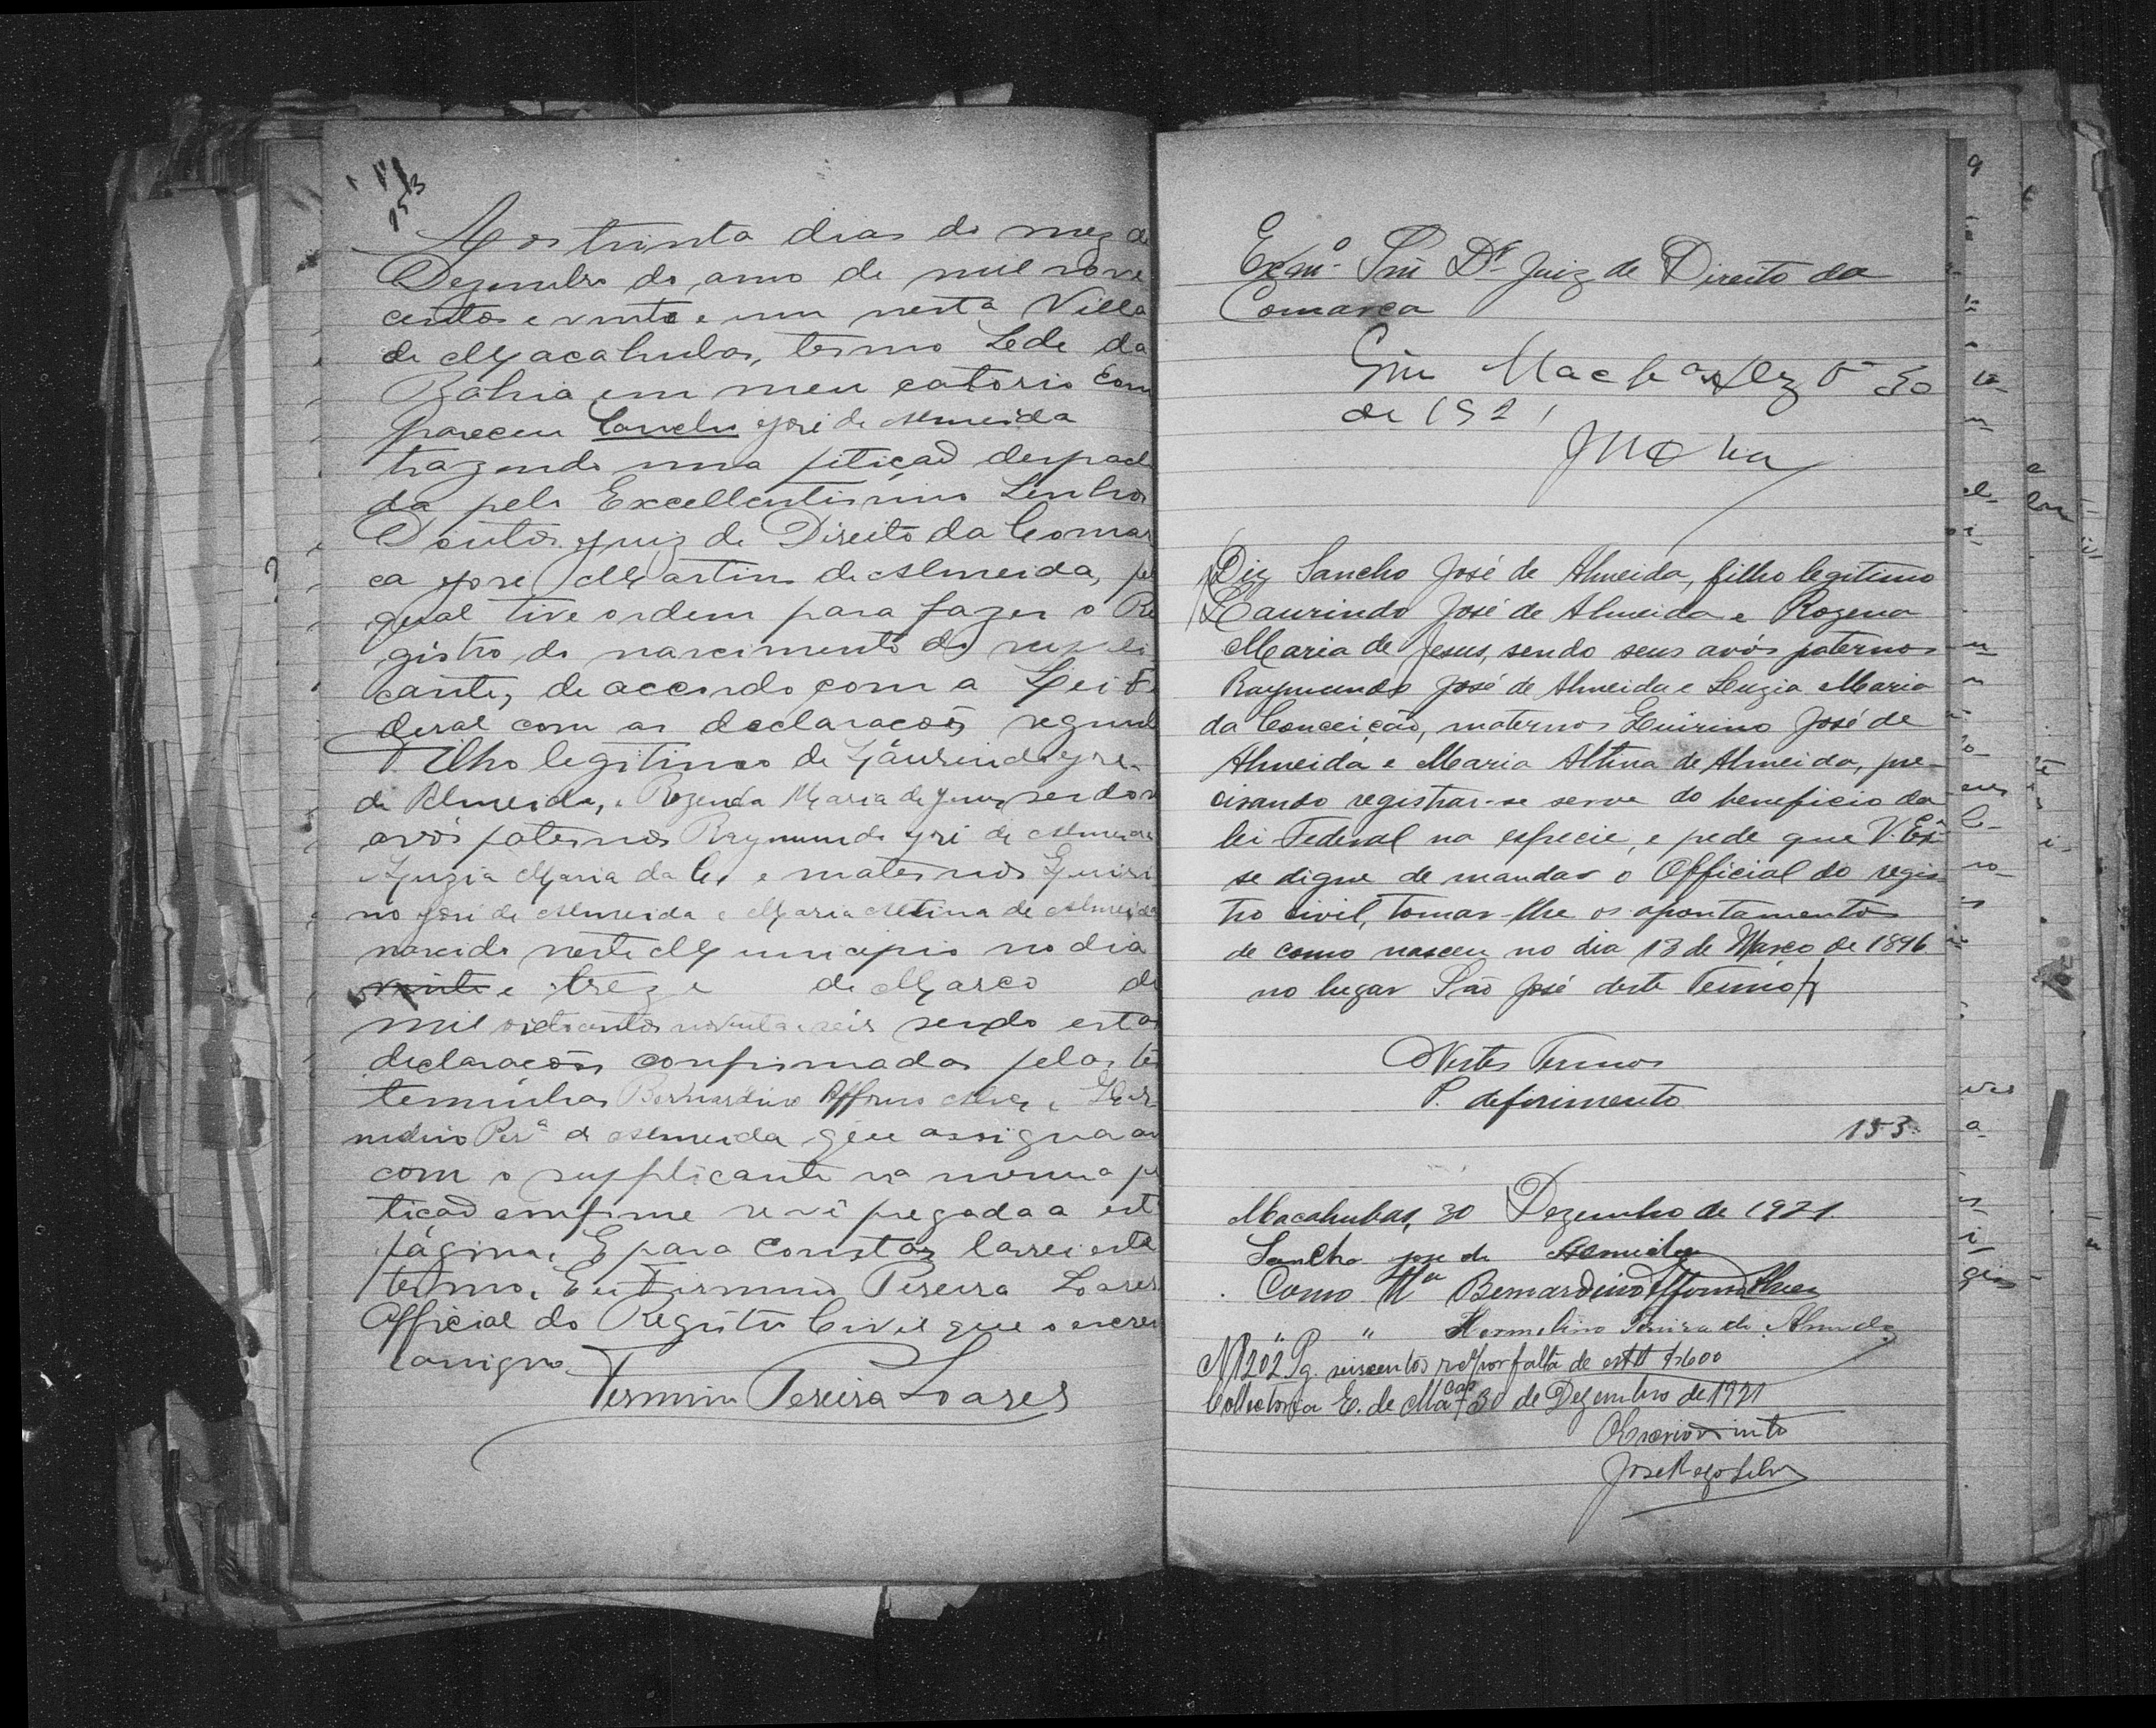 153
Aos trinta dias do mez de
Dezembro do anno de mil nove
centos e vinte e um nesta Villa
de Macahubas, termo Sede da
Bahia em meu catorio com
pareceu Sancho José de Almeida
trazendo uma petiçaõ despach
da pelo Excellentissimo Senhor
Doutor Juiz de Direito da Comar
ca José Martins de Almeida, pel
qual tive ordem para fazer o Re
gistro do nascimento do suppli
cante, de accordo com a Lei Fe
deral com as declaracoẽs segund
Filho legitimo de Laurindo José
de Almeida, e Rozenda Maria de Jesus sendo s
avós paternos Raymundo José de Almeida
Luzia Maria da Cm e maternos Quiri
no José de Almeida e Maria Altina de Almeida
nascido neste Municipio no dia
vinte e treze de Marco de
mil oitocentos noventa e seis sendo estas
declaracoẽs confirmadas pelas tes
teminhas Bernardino Affonso Alves e Her
melino Perª de Almeida que assignaa
com o supplicante na mesma pe
ticaõ comfirme se vê pregada a est
página. E para constar lavrei este
termo. Eu Firmino Pereira Soares
Official do Registro Civil que o escrev
e assigno
Firmino Pereira Soares
Exmº Snr Dr Juiz de Direito da
Comarca
Sim Macbas Dezbº 30
de 1921
Diz Sancho José de Almeida, filho legitimo
Laurindo José de Almeida e Rozena
Maria de Jesus, sendo seus avós paternos
Raymundo José de Almeida e Luzia Maria
da Conceição, maternos Quirino José de
Almeida e Maria Altina de Almeida, pre-
cisando registrar-se serve do beneficio da
lei Federal na especie, e pede que V. Exª
se digne de mandar o Official do regis-
tro civil, tomar-lhe os apontamentos
de como nasceu no dia 13 de Março de 1896
no lugar São José deste Termo
Nestes Termos
P. deferimento
153.
Macahubas, 30 Dezembro de 1921.
Sancho jose de Almeida
Como Ttª Bernardino Affonso Alves
" " Hermelino Pereira de Almeida
N 1202 Pg. seiscentos rs por falta de estª $600
Collectoria E. de Macas 30 de Dezembro de 1921
José Rego Silva